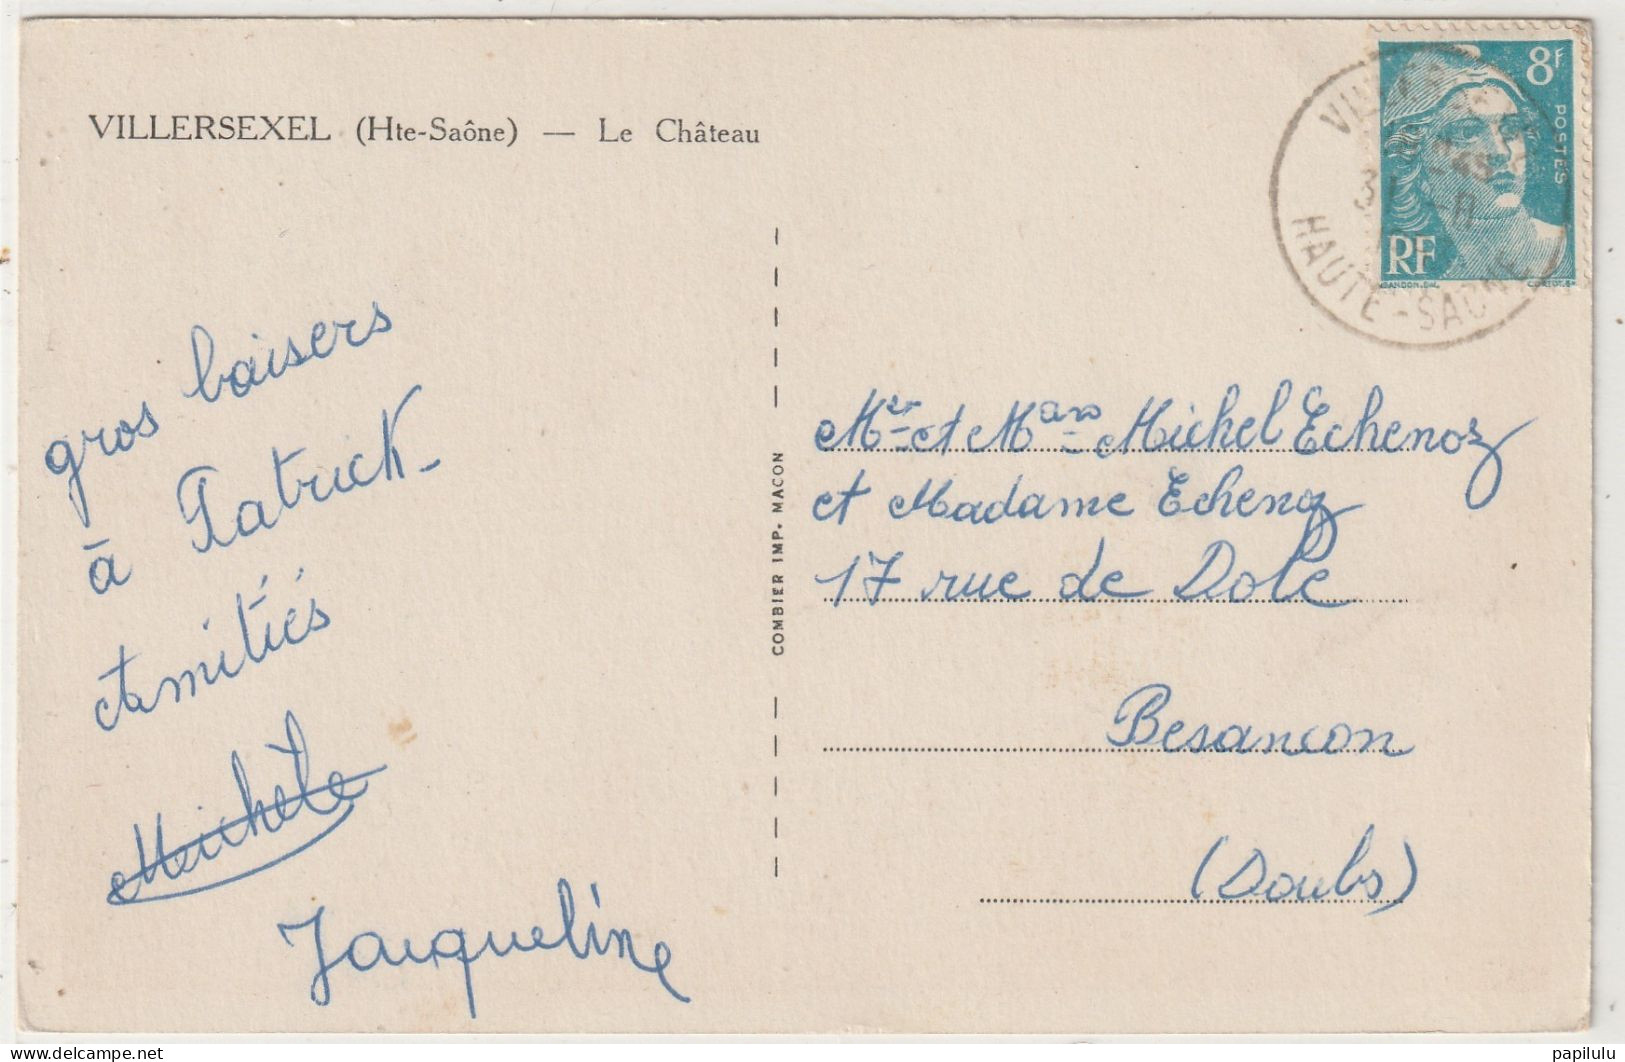 VILLERSEXEL (Hte-Saône) — Le Château
gros baisers
à Patrick
et amitiés
Michèle
Jacqueline
COMBIER IMP. MACON
8F
POSTES
RF
HAUTE-SAONE
Mr et Michel Echenoz
et Madame Echenoz
17 rue de Dole
Besancon
(Doubs)
papilulu